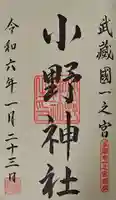 武蔵國一之宮
小野神社
令和六年一月二十三日